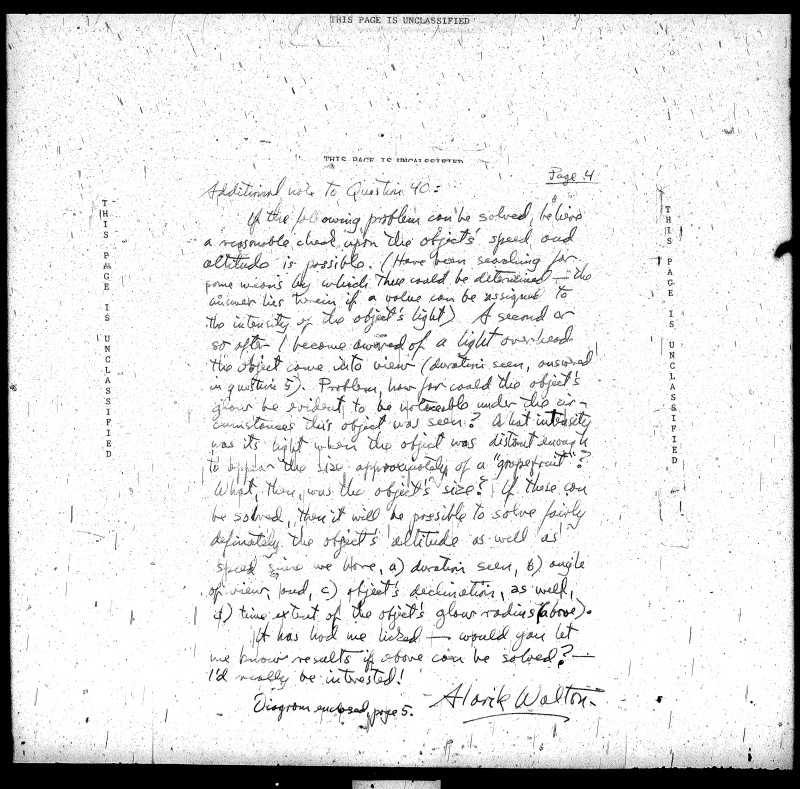 THIS PAGE IS UNCLASSIFIED
THIS PAGE IS UNCLASSIFIED
Page 4
Additional note to Question 40:
If the following problem can be solved, believe
a reasonable check upon the object's speed and
altitude is possible. (Have been searching for
some means by which these could be determined — the
answer lies herein if a value can be assigned to
the intensity of the object's light) A second or
so after I became awared of a light overhead
the object came into view (duration seen, answered
in question 5). Problem, how far could the object's
glow be evident, to be noticeable under the cir-
cumstances this object was seen? What intensity
was its light when the object was distant enough
to appear the size approximately of a "grapefruit"?
What, then, was the object's size? If these can
be solved, then it will be possible to solve fairly
definately the object's altitude as well as
speed since we have, a) duration seen, b) angle
of view, and, c) object's declination, as well,
d) time extent of the object's glow radius (above).
It has had me licked — would you let
me know results if above can be solved? —
I'd really be interested!
Diagram enclosed, page 5.
- Alarik Walton -
THIS PAGE IS UNCLASSIFIED
THIS PAGE IS UNCLASSIFIED